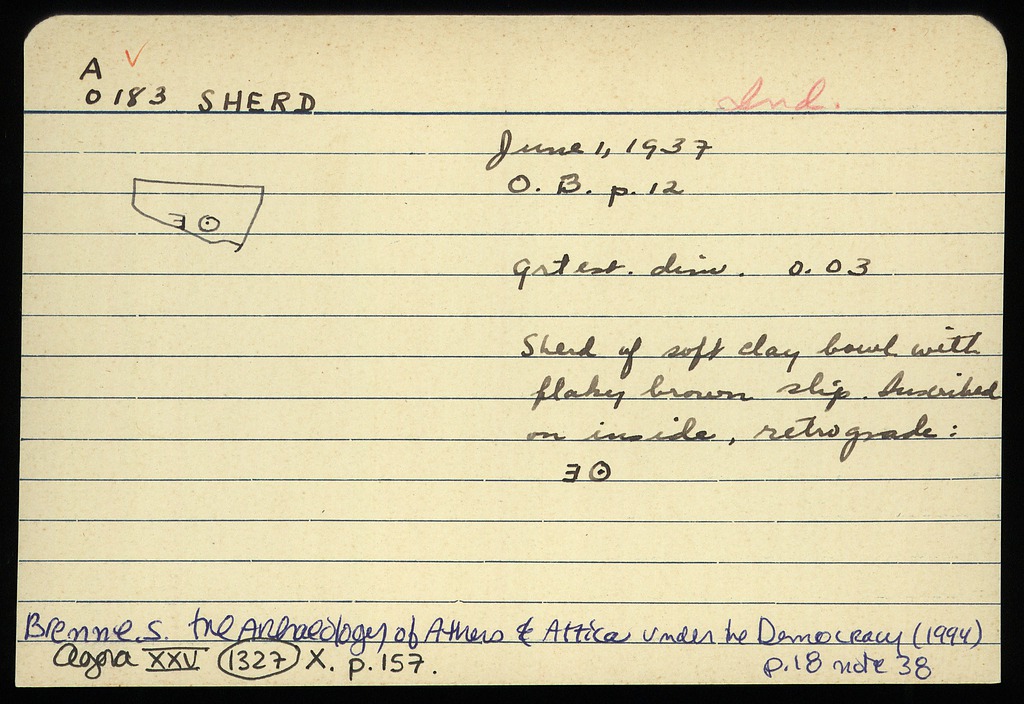 A ✓
0183 SHERD
Ind.
June 1, 1937
O. B. p. 12
ƎΘ
grtest. dim. 0.03
Sherd of soft clay bowl with
flaky brown slip. Inscribed
on inside, retrograde:
ƎΘ
Brenne, S. The Archaeology of Athens & Attica under the Democracy (1994)
p.18 note 38
Agora XXV 1327 X. p.157.